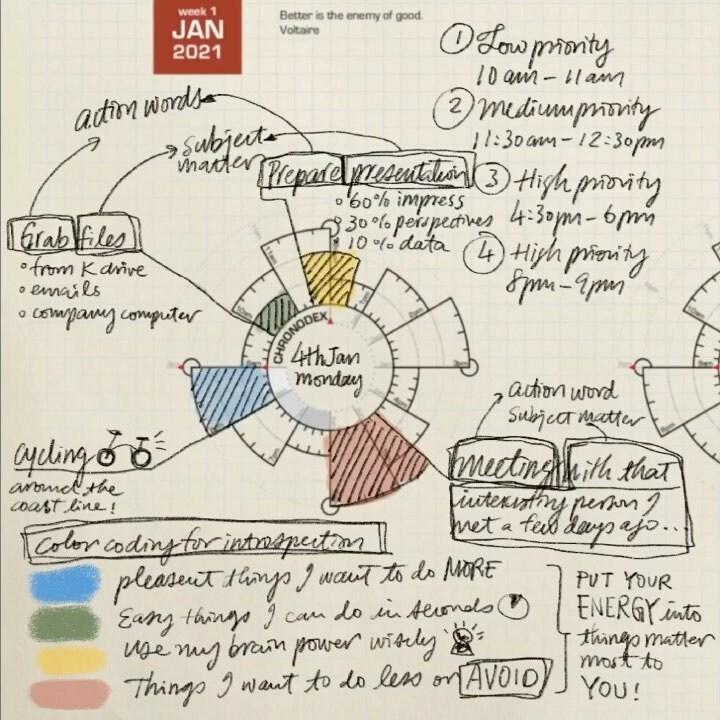 week 1
JAN
2021
Better is the enemy of good.
Voltaire
① Low priority
10am - 11am
② Medium priority
11:30am - 12:30pm
③ High priority
4:30pm - 6pm
④ High priority
8pm - 9pm
action words
Subject
matter
Prepare presentation
60% impress
30% perspectives
10% data
Grab files
from K drive
emails
company computer
CHRONODEX
4th Jan
monday
cycling
around the
coast line!
action word
Subject matter
meeting with that
interesting person I
met a few days ago...
Color coding for introspection
pleasent things I want to do MORE
Easy things I can do in seconds
use my brain power wisely
Things I want to do less or AVOID
PUT YOUR
ENERGY into
things matter
most to
YOU!